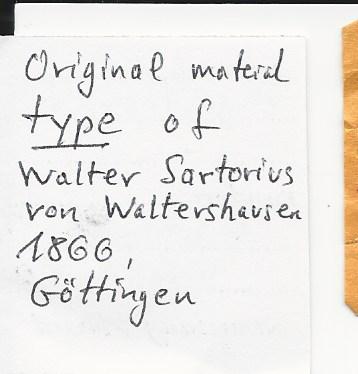 Original material
type of
Walter Sartorius
von Waltershausen
1866,
Göttingen